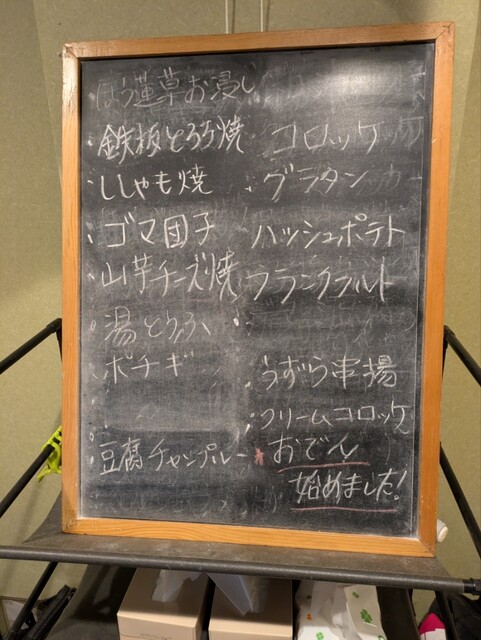 ほう蓮草お浸し
・鉄板とろろ焼
・ししゃも焼
・ゴマ団子
・山芋チーズ焼
・湯とうふ
・ポチギ
・豆腐チャンプルー
コロッケ
・グラタン
ハッシュポテト
フランクフルト
・うずら串揚
・クリームコロッケ
*おでん
始めました!